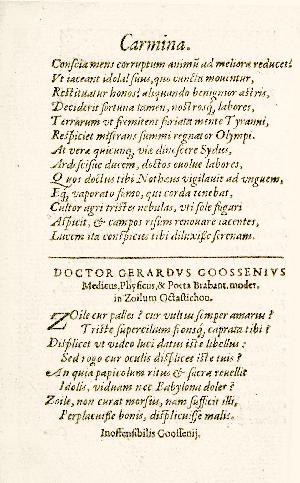 Carmina.
Conscia mens corruptum animū ad meliora reducet!
Ut iaceant idola! suus, quo cuncta moventur,
Restituatur honos! aliquando benignior astris,
Deciderit fortuna tamen, nostrosq, labores,
Terrarum ut fremitent furiata mente Tyranni,
Respiciet miserans summi regnator Olympi.
At vera quicunq, via dinoscere Sydus,
Ardescis: hic ducem, doctos evolue labores,
Quos doctus tibi Notheus vigilauit ad unguem,
Eq, vaporato somno, qui corda tenebat,
Cultor agri tristes nebulas, uti sole fugari
Aspicit, & campos risum renouare iacentes,
Lucem ita conspicies tibi diluxisse serenam.
DOCTOR GERARDVS GOOSSENIVS
Medicus, Physicus, & Poeta Brabant. moder.
in Zoilum Octastichon.
Zoile cur palles? cur vultus semper amarus?
Triste supercilium fronsq, caprata tibi?
Displicet ut video luci datus iste libellus:
Sed rogo cur oculis displicet iste tuis?
An quia papicolum ritus & sacra reuellit
Idolis, viduam nec Babylona dolet?
Zoile, non curat morsus, nam sufficit illi,
Perplacuisse bonis, displicuisse malis.
Inoffensibilis Goossenij.